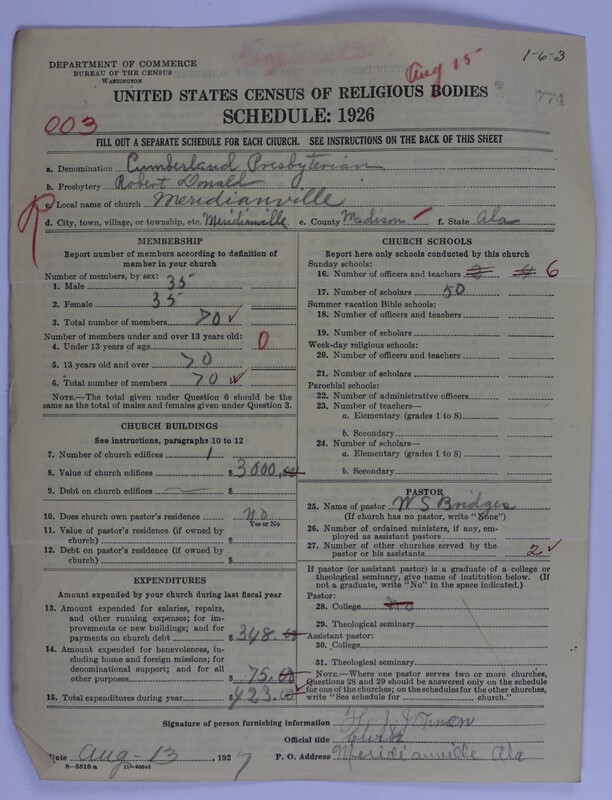 1-6-3
DEPARTMENT OF COMMERCE
BUREAU OF THE CENSUS
WASHINGTON
Aug 15
UNITED STATES CENSUS OF RELIGIOUS BODIES
SCHEDULE: 1926
003
FILL OUT A SEPARATE SCHEDULE FOR EACH CHURCH. SEE INSTRUCTIONS ON THE BACK OF THIS SHEET
a. Denomination Cumberland Presbyterian
b. Presbytery Robert Donald
c. Local name of church Meridianville
d. City, town, village, or township, etc. Meridianville e. County Madison f. State Ala
MEMBERSHIP
Report number of members according to definition of
member in your church
Number of members, by sex:
1. Male 35
2. Female 35
3. Total number of members 70
Number of members under and over 13 years old:
4. Under 13 years of age 0
5. 13 years old and over 70
6. Total number of members 70
NOTE.—The total given under Question 6 should be
the same as the total of males and females given under Question 3.
CHURCH BUILDINGS
See instructions, paragraphs 10 to 12
7. Number of church edifices 1
8. Value of church edifices $3000.00
9. Debt on church edifices $
10. Does church own pastor's residence No
Yes or No
11. Value of pastor's residence (if owned by
church) $
12. Debt on pastor's residence (if owned by
church) $
EXPENDITURES
Amount expended by your church during last fiscal year
13. Amount expended for salaries, repairs,
and other running expenses; for im-
provements or new buildings; and for
payments on church debt $348.00
14. Amount expended for benevolences, in-
cluding home and foreign missions; for
denominational support; and for all
other purposes $75.00
15. Total expenditures during year $423.00
CHURCH SCHOOLS
Report here only schools conducted by this church
Sunday schools:
16. Number of officers and teachers 6
17. Number of scholars 50
Summer vacation Bible schools:
18. Number of officers and teachers
19. Number of scholars
Week-day religious schools:
20. Number of officers and teachers
21. Number of scholars
Parochial schools:
22. Number of administrative officers
23. Number of teachers—
a. Elementary (grades 1 to 8)
b. Secondary
24. Number of scholars—
a. Elementary (grades 1 to 8)
b. Secondary
PASTOR
25. Name of pastor W S Bridges
(If church has no pastor, write "None")
26. Number of ordained ministers, if any, em-
ployed as assistant pastors
27. Number of other churches served by the
pastor or his assistants 2
If pastor (or assistant pastor) is a graduate of a college or
theological seminary, give name of institution below. (If
not a graduate, write "No" in the space indicated.)
Pastor:
28. College No
29. Theological seminary
Assistant pastor:
30. College
31. Theological seminary
NOTE.—Where one pastor serves two or more churches,
Questions 28 and 29 should be answered only on the schedule
for one of the churches; on the schedules for the other churches,
write "See schedule for church."
Signature of person furnishing information
Official title Clerk
Date Aug-13 1927 P. O. Address Meridianville Ala
8-5318a